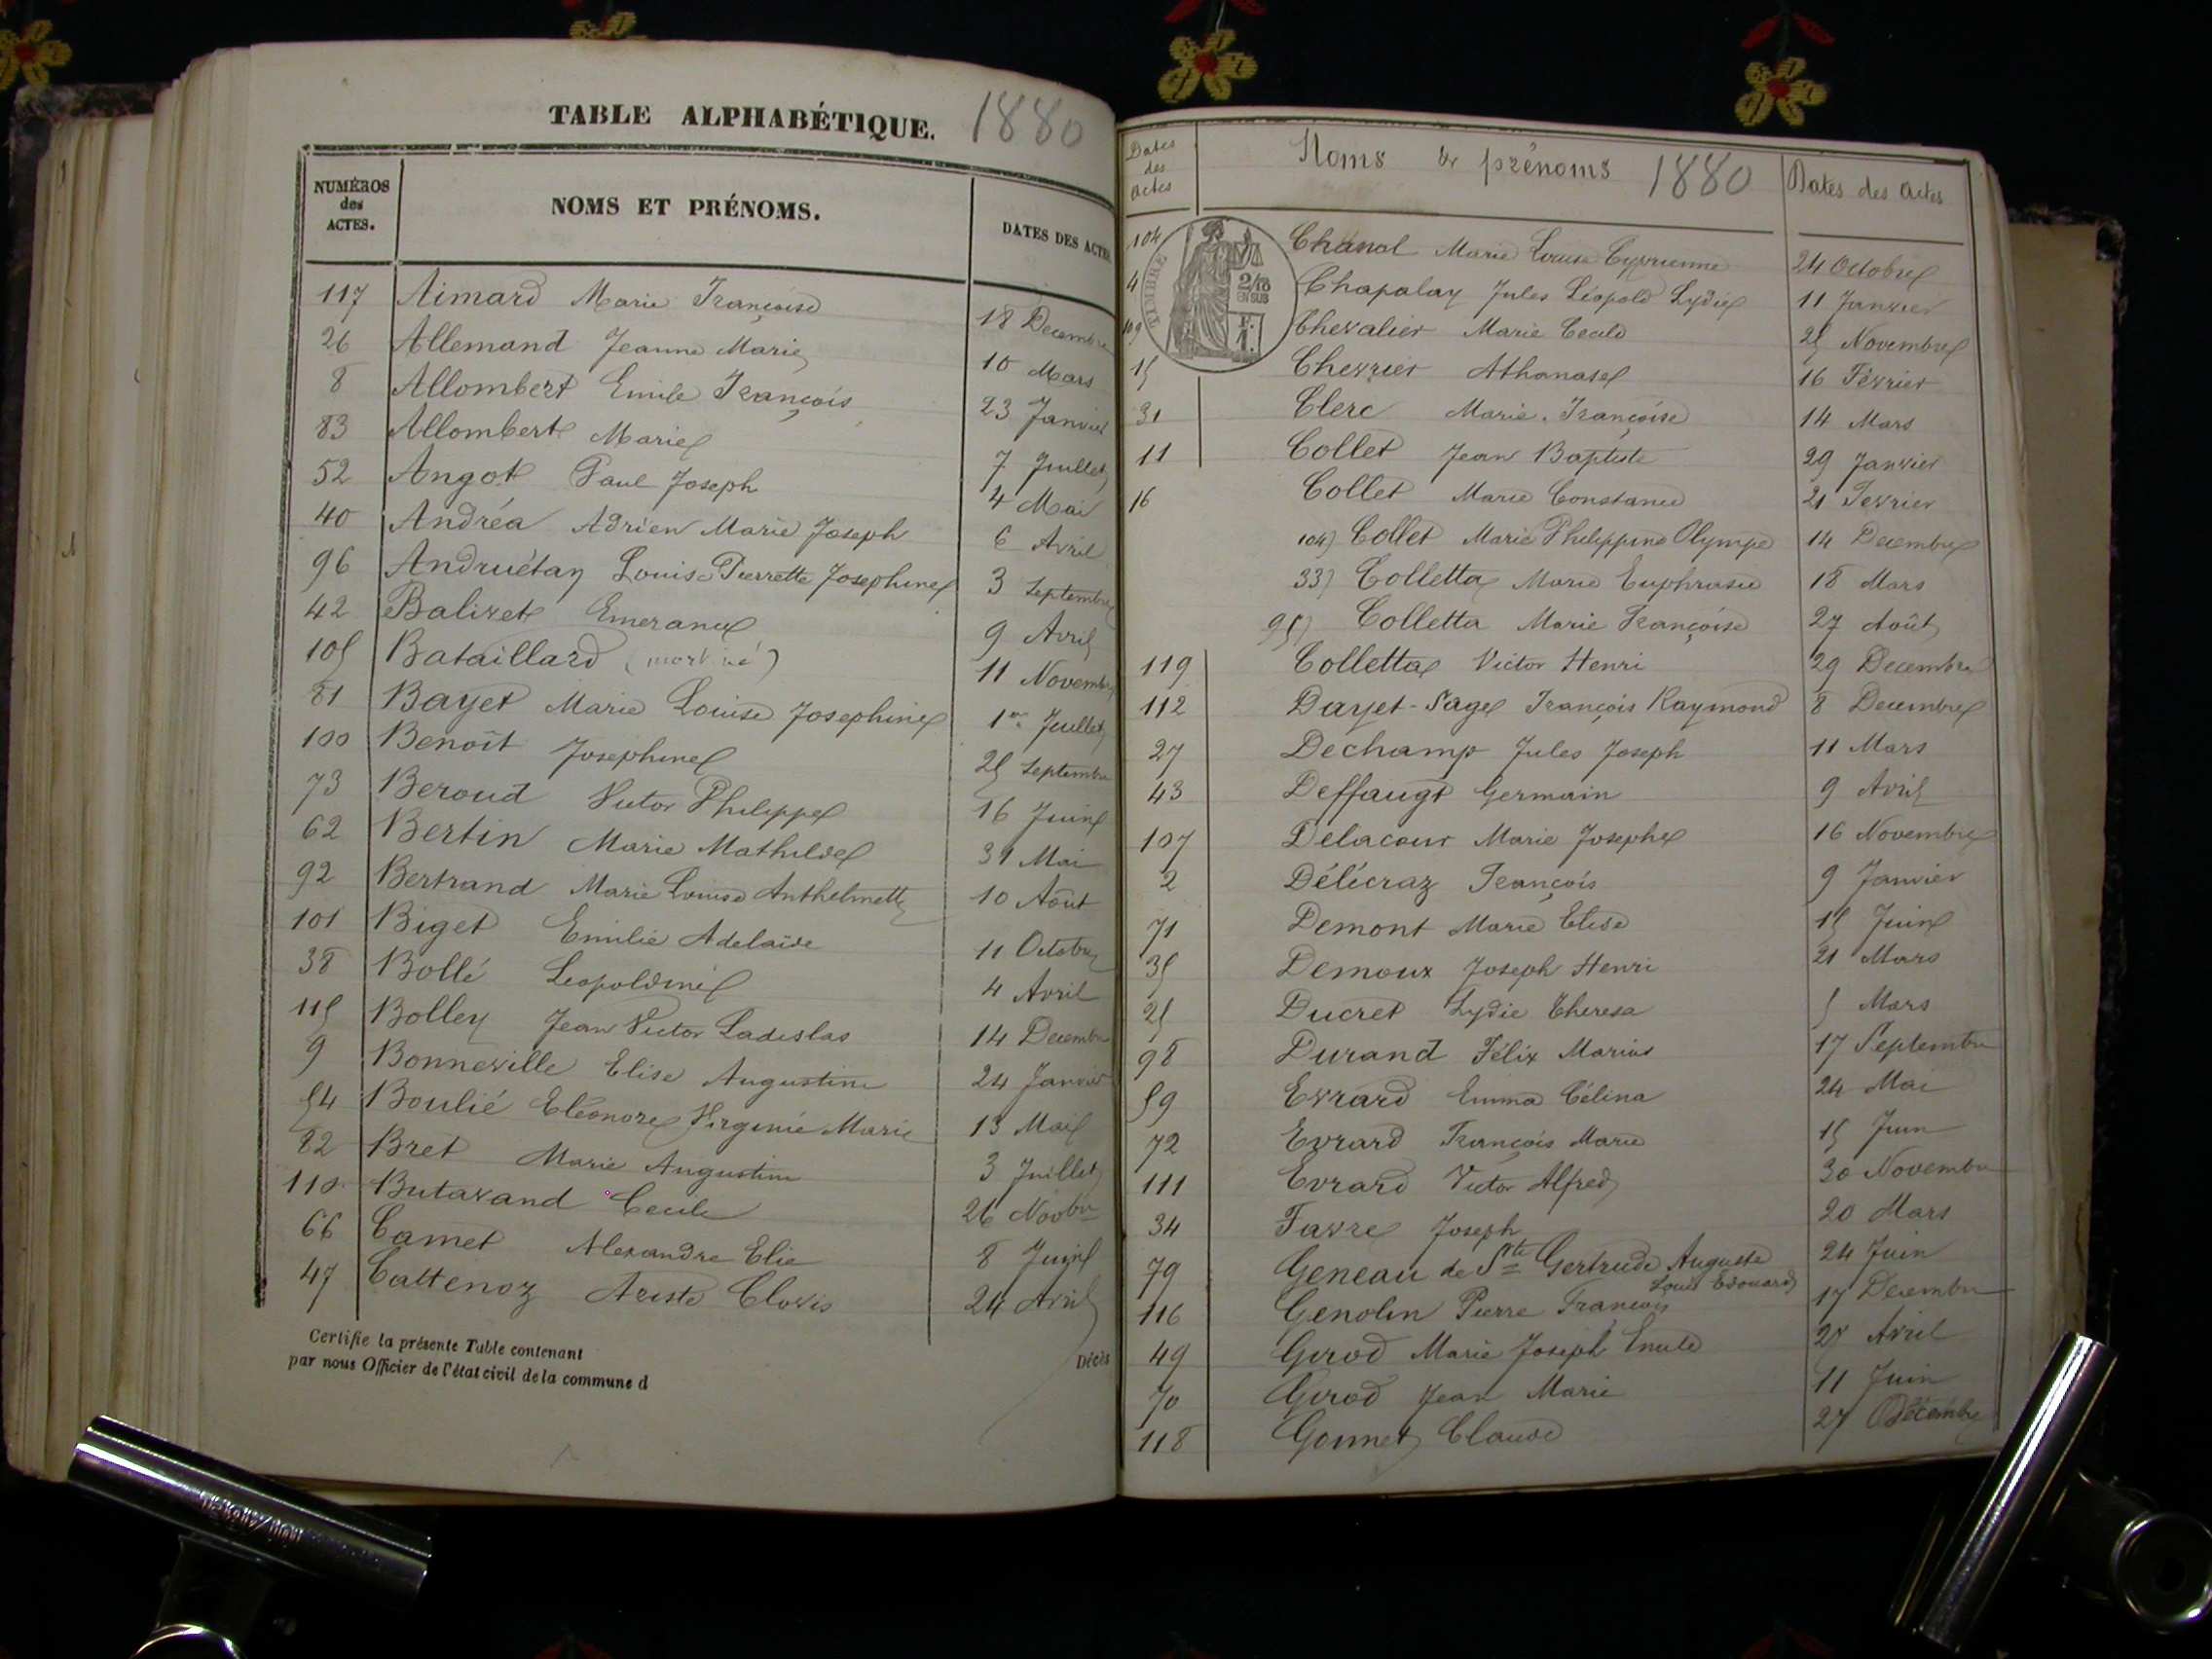 TABLE ALPHABÉTIQUE. 1880
NUMÉROS des ACTES. NOMS ET PRÉNOMS. DATES DES ACTES
117 Aimard Marie Françoise 18 Decembre
26 Allemand Jeanne Marie 10 Mars
8 Allombert Emile François 23 Janvier
83 Allombert Marie 7 Juillet
52 Angot Paul Joseph 4 Mai
40 Andréa Adrien Marie Joseph 6 Avril
96 Andruétan Louise Pierrette Josephine 3 Septembre
42 Balivet 9 Avril
105 Bataillard (mort né) 11 Novembre
81 Bayet Marie Louise Josephine 1er Juillet
100 Benoît Josephine 25 Septembre
73 Beroud Victor Philippe 16 Juin
62 Bertin Marie Mathilde 31 Mai
92 Bertrand Marie Louise Anthelmette 10 Août
101 Biget Emilie Adelaïde 11 Octobre
38 Bollé Leopoldine 4 Avril
115 Bolley Jean Victor Ladislas 14 Decembre
9 Bonneville Elise Augustine 24 Janvier
54 Boulié Eléonore Virginie Marie 13 Mai
82 Bret Marie Augustine 3 Juillet
110 Butavand Cecile 26 Novbre
66 Camet Alexandre Elie 8 Juin
47 Cattenoz Ariste Clovis 24 Avril
Certifie la présente Table contenant Décès
par nous Officier de l'état civil de la commune d
Dates des Actes Noms & prénoms 1880 Dates des Actes
TIMBRE 2/10 EN SUS F. 1.
104 Chanal Marie Louise Cyprienne 24 Octobre
4 Chapalay Jules Léopold Lydie 11 Janvier
109 Chevalier Marie Cecile 25 Novembre
15 Chevrier Athanase 16 Février
31 Clerc Marie Françoise 14 Mars
11 Collet Jean Baptiste 29 Janvier
16 Collet Marie Constance 21 Fevrier
104) Collet Marie Philippine Olympe 14 Decembre
33) Colletta Marie Euphrasie 18 Mars
95) Colletta Marie Françoise 27 Août
119 Colletta Victor Henri 29 Decembre
112 Dayet-Sage François Raymond 8 Decembre
27 Dechamp Jules Joseph 11 Mars
43 Deffaugt Germain 9 Avril
107 Delacour Marie Josephe 16 Novembre
2 Délécraz François 9 Janvier
71 Demont Marie Elise 15 Juin
35 Demoux Joseph Henri 21 Mars
25 Ducret Lydie Theresa 5 Mars
98 Durand Félix Marius 17 Septembre
59 Evrard Emma Célina 24 Mai
72 Evrard François Marie 15 Juin
111 Evrard Victor Alfred 30 Novembre
34 Favre Joseph 20 Mars
79 Geneau de Ste Gertrude Auguste Louis Edouard 24 Juin
116 Genolin Pierre François 17 Decembre
49 Girod Marie Joseph Emile Avril
70 Girod Jean Marie 11 Juin
118 Gonnet Claude 27 Décembre